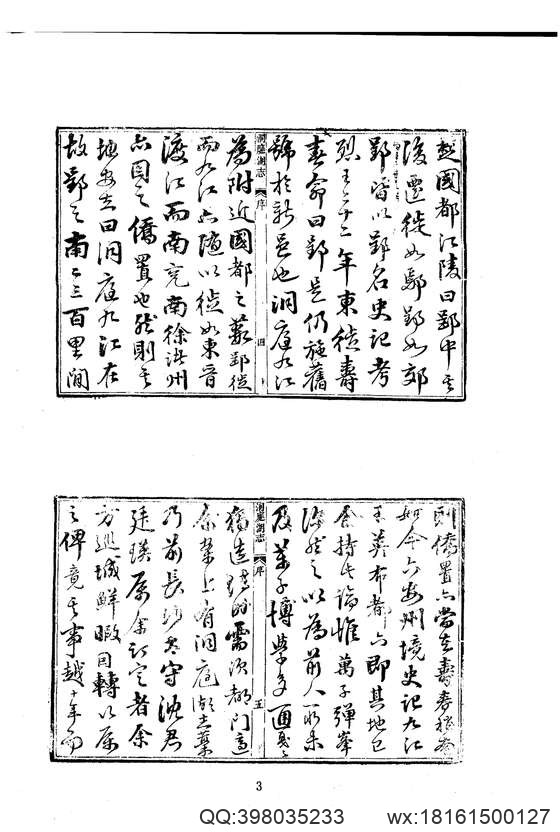 楚國都江陵曰郢中其
後遷徙如鄢郢如郊
郢皆以郢名史記考
烈王二十二年東徙壽
春命曰郢是仍施舊
號於新邑也洞庭九江
洞庭湖志 序 四
為附近國都之藪郢徙
而九江亦隨以徙如東晉
渡江而南兗南徐諸州
亦因之僑置也然則其
地安在曰洞庭九江在
故郢之南二三百里間
則僑置亦當在壽春
如今六安州境史記九江
王英布都六即其地也
余持此論惟萬子彈峯
深然之以為前人所未
及萬子博學多通
洞庭湖志 序 五
獨造需次都門適
余案上有洞庭湖志藁
乃前長沙太守沈君
廷瑛屬余訂定者余
方巡城鮮暇因轉以屬
之俾竟其事越十年而
3
QQ:398035233 wx:18161500127